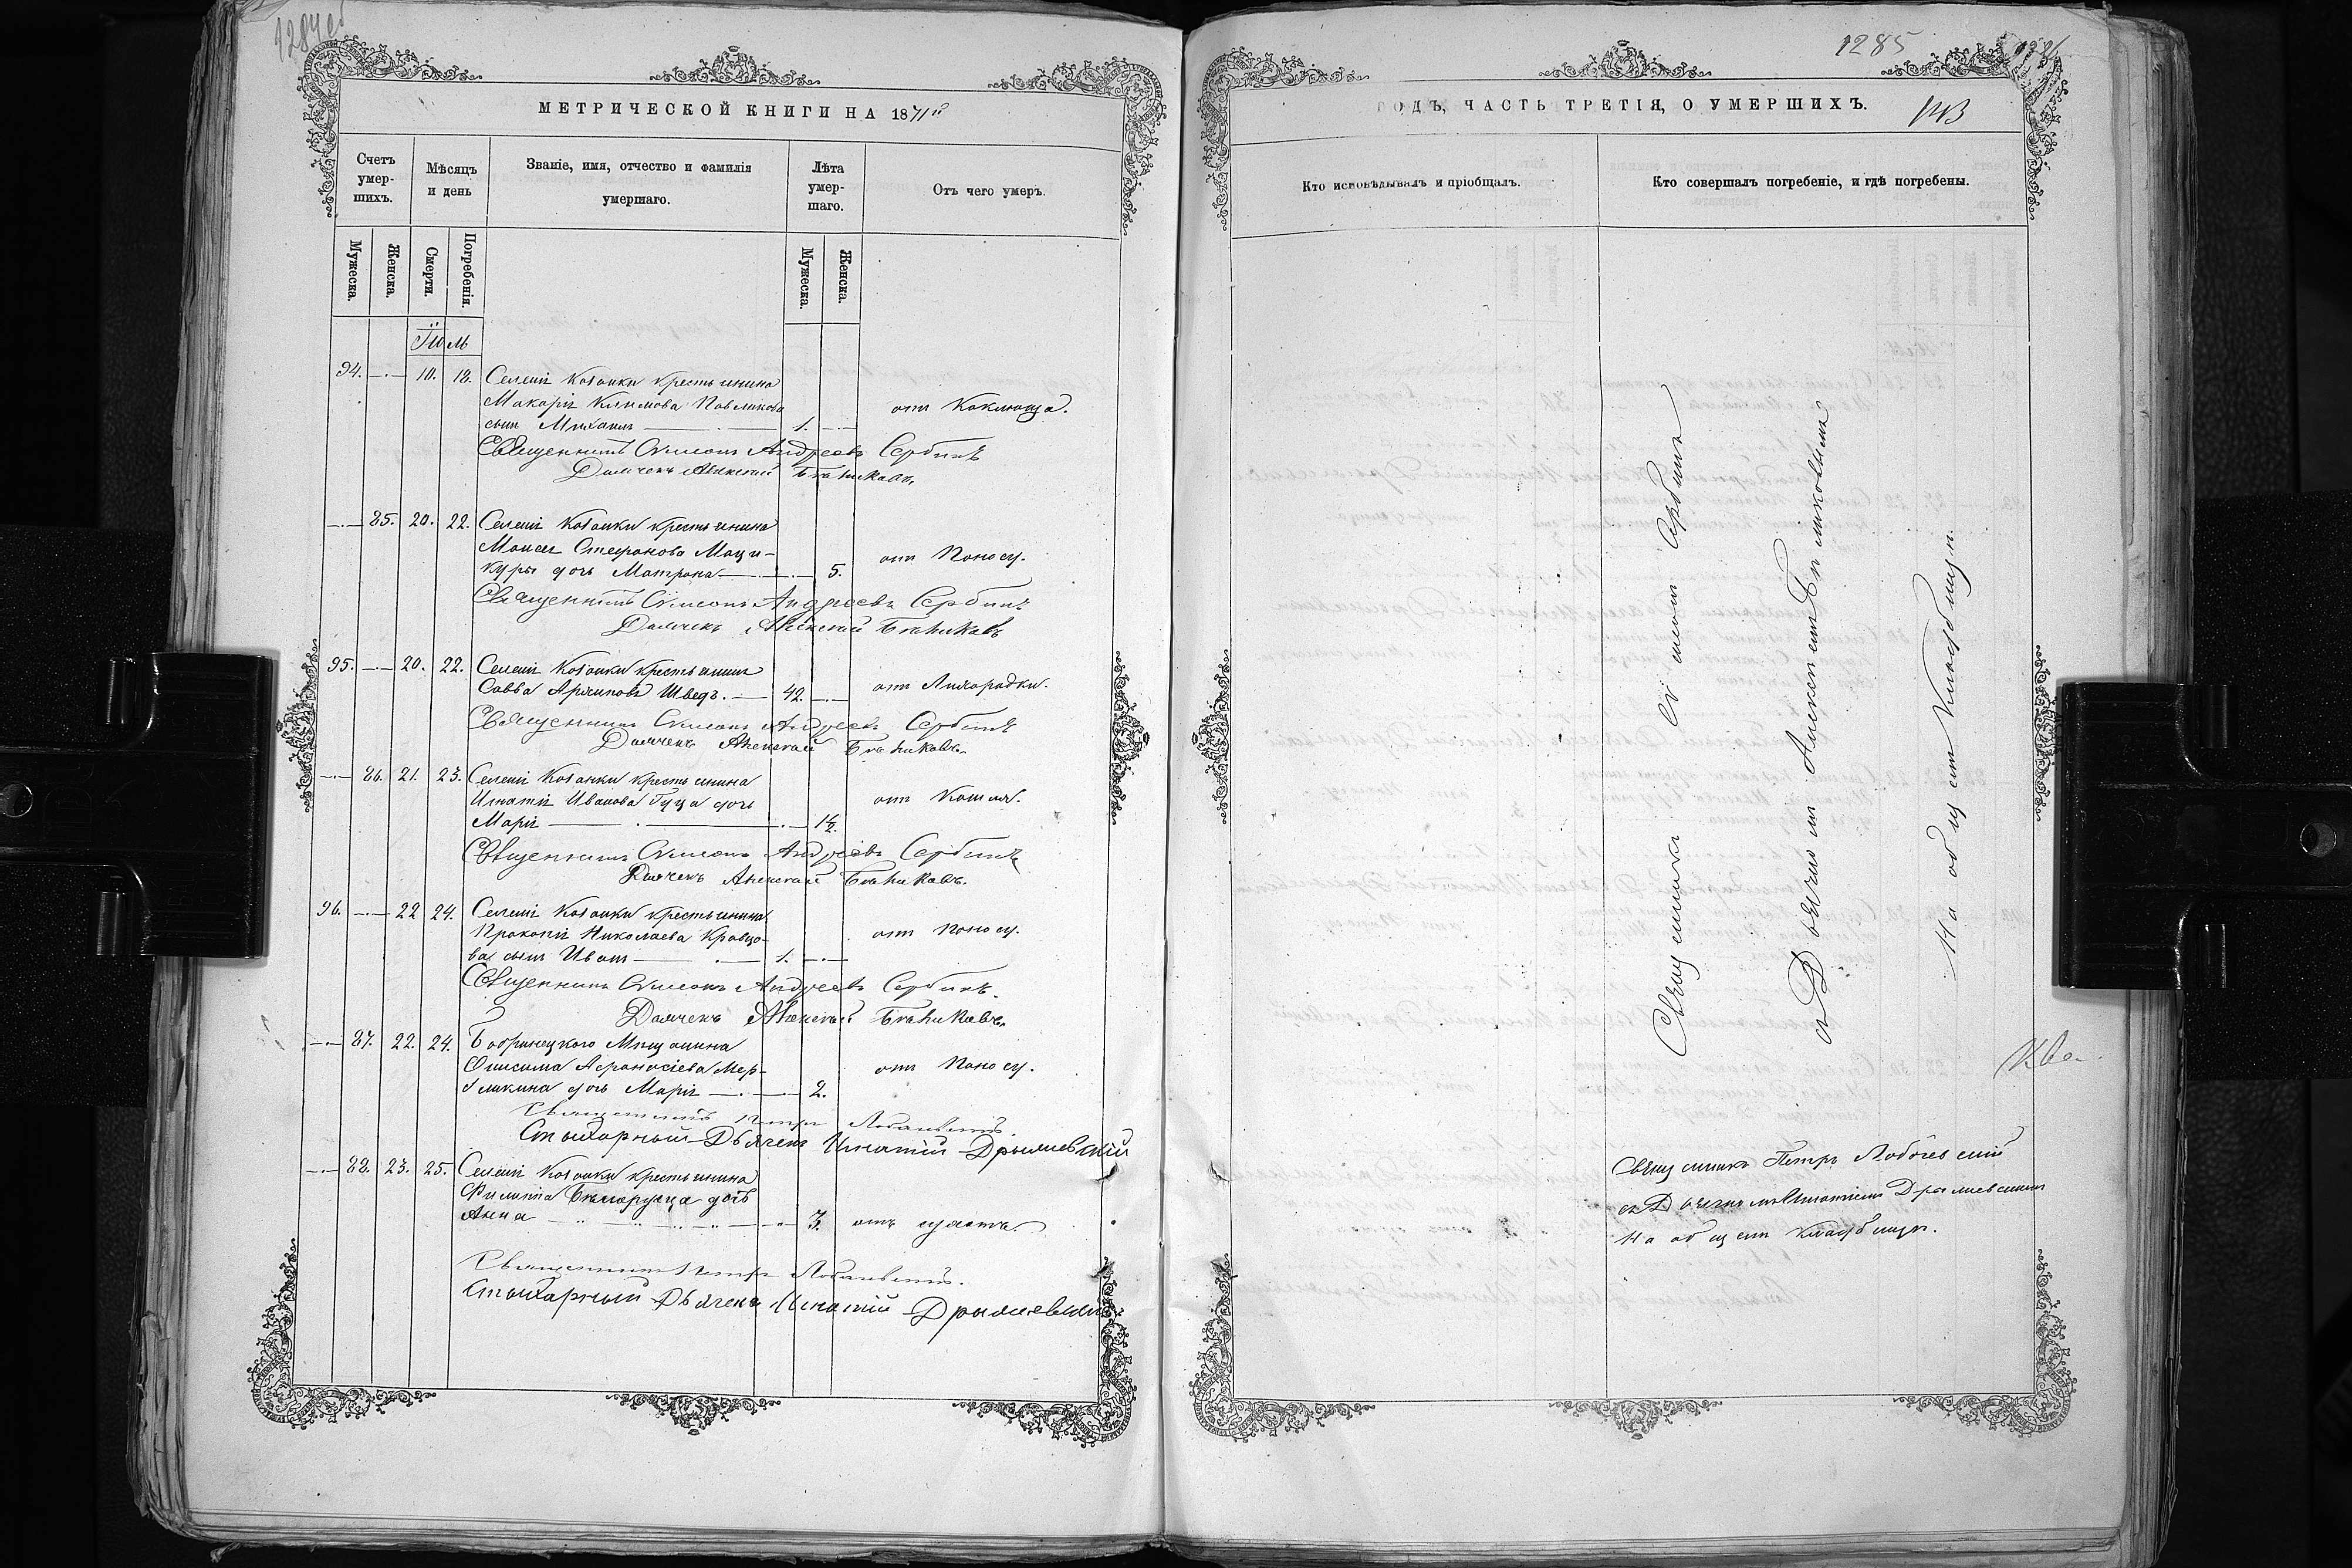 1284об
МЕТРИЧЕСКОЙ КНИГИ НА 1871й
Счетъ умер-шихъ.
Мѣсяцъ и день
Званіе, имя, отчество и фамилія умершаго.
Лѣта умер-шаго.
Отъ чего умеръ.
Мужеска.
Женска.
Смерти.
Погребенія.
Мужеска.
Женска.
Іюль
94. 10. 12. Селенія Козанки крестьянина
Макарія Климова Павликова
сынъ Михаилъ 1. отъ Коклюша.
Священникъ Симеонъ Андреевъ Сербинъ
Дьячекъ Алексѣй
85. 20. 22. Селенія Козанки крестьянина
Моисея Стефанова Маци-
куры дочь Матрона 5. отъ Поносу.
Священникъ Симеонъ Андреевъ Сербинъ
Дьячекъ Алексѣй
95. 20. 22. Селенія Козанки крестьянинъ
Савва Архиповъ Шведъ. 42. отъ Лихорадки.
Священникъ Симеонъ Андреевъ Сербинъ
Дьячекъ Алексѣй
86. 21. 23. Селенія Козанки крестьянина
Игнатія Иванова Гуца дочь
Марія 1½. отъ Кашля.
Священникъ Симеонъ Андреевъ Сербинъ
Дьячекъ Алексѣй
96. 22 24. Селенія Козанки крестьянина
Прокопія Николаева Кравцо-
ва сынъ Иванъ 1. отъ поносу.
Священникъ Симеонъ Андреевъ Сербинъ.
Дьячекъ Алексѣй
87. 22. 24. Бобринецкого Мѣщанина
Онисима Афанасіева
дочь Марія 2. отъ Поносу.
Священникъ Петръ
Стихарный Дьячекъ Игнатій Дрылиевскій
88. 23. 25. Селенія Козанки крестьянина
Филиппа дочь
Анна 3.
Священникъ Петръ
Стихарный Дьячекъ Игнатій Дрылиевскій
1285
ГОДЪ, ЧАСТЬ ТРЕТІЯ, О УМЕРШИХЪ.
Кто исповѣдывалъ и пріобщалъ.
Кто совершалъ погребеніе, и гдѣ погребены.
Священникъ Симеонъ Сербинъ
съ Дьячкомъ Алексеемъ
На общемъ Кладбищѣ.
Священникъ Петръ
съ Дьячкомъ Игнатіемъ Дрылиевскимъ
На общемъ Кладбищѣ.